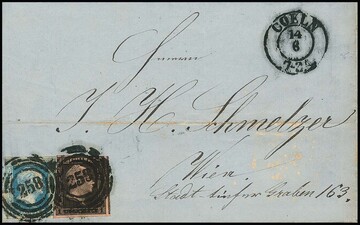 COELN
14
6
Herrn
J. H. Schmelzer
Wien
Stadt
Graben 163.
258
258